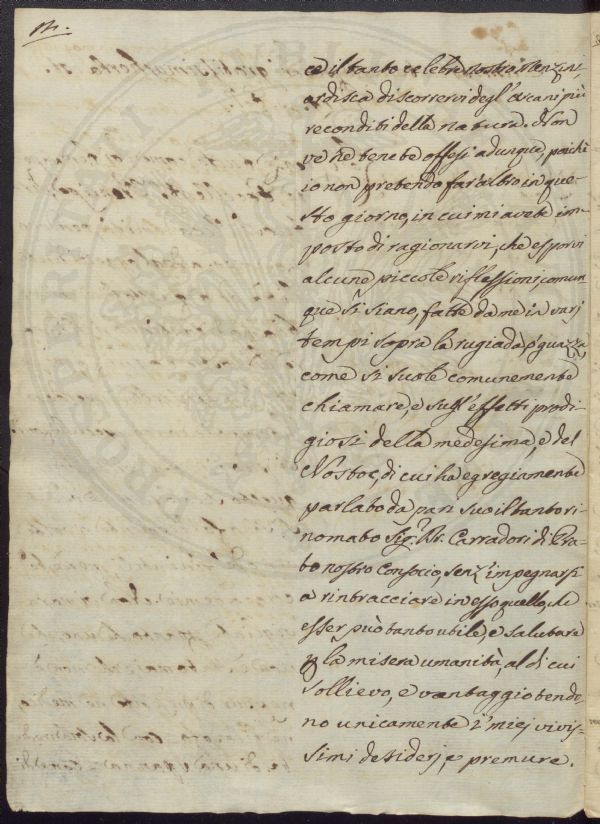 ce il tanto celebre nostro Menzini,
ardisca discorrervi degl'Arcani più
reconditi della natura. Non
ve ne tenete offesi adunque, poichè
io non pretendo far'altro in que-
sto giorno, in cui mi avete im-
posto di ragionarvi, che esporvi
alcune piccole riflessioni comun
que si siano, fatte da me in varj
tempi sopra la rugiada, o guazza
come si suole comunemente
chiamare, e sugl'effetti prodi
giosi della medesima, e del
Nostoc, di cui ha egregiamente
parlato da pari suo il tanto ri-
nomato Sig.r Dr. Carradori di Pra-
to nostro Consocio, senz'impegnarsi
a rintracciare in esso quello, che
esser può tanto utile, e salutare
p la misera umanità, al di cui
sollievo, e vantaggio tendo-
no unicamente i miej vivis-
simi desiderj, e premure.